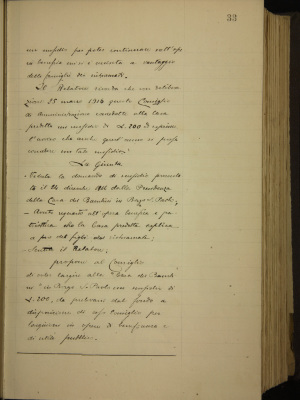 33
un sussidio per poter continuare nell'opera
benefica cui è venuta a vantaggio
delle famiglie dei richiamati.
Il Relatore ricorda che con delibera
zione 25 marzo 1916 questo Consiglio
di Amministrazione
predetta un sussidio di L. 200
anche quest'anno
con tale sussidio.
La Giunta
- Veduta la domanda di sussidio presenta
ta il 24 dicembre 1916 dalla Presidenza
della Casa dei Bambini in Borgo S. Paolo;
- Avuto riguardo all'opera benefica e pa
triottica che la Casa predetta esplica
a pro dei figli dei richiamati;
- Sentito il Relatore;
propone al Consiglio
di voler largire alla "Casa dei Bambi
ni" in Borgo S. Paolo un sussidio di
L. 200, da prelevarsi dal fondo a
disposizione di esso Consiglio per
largizioni in opere di beneficenza e
di utilità pubblica.